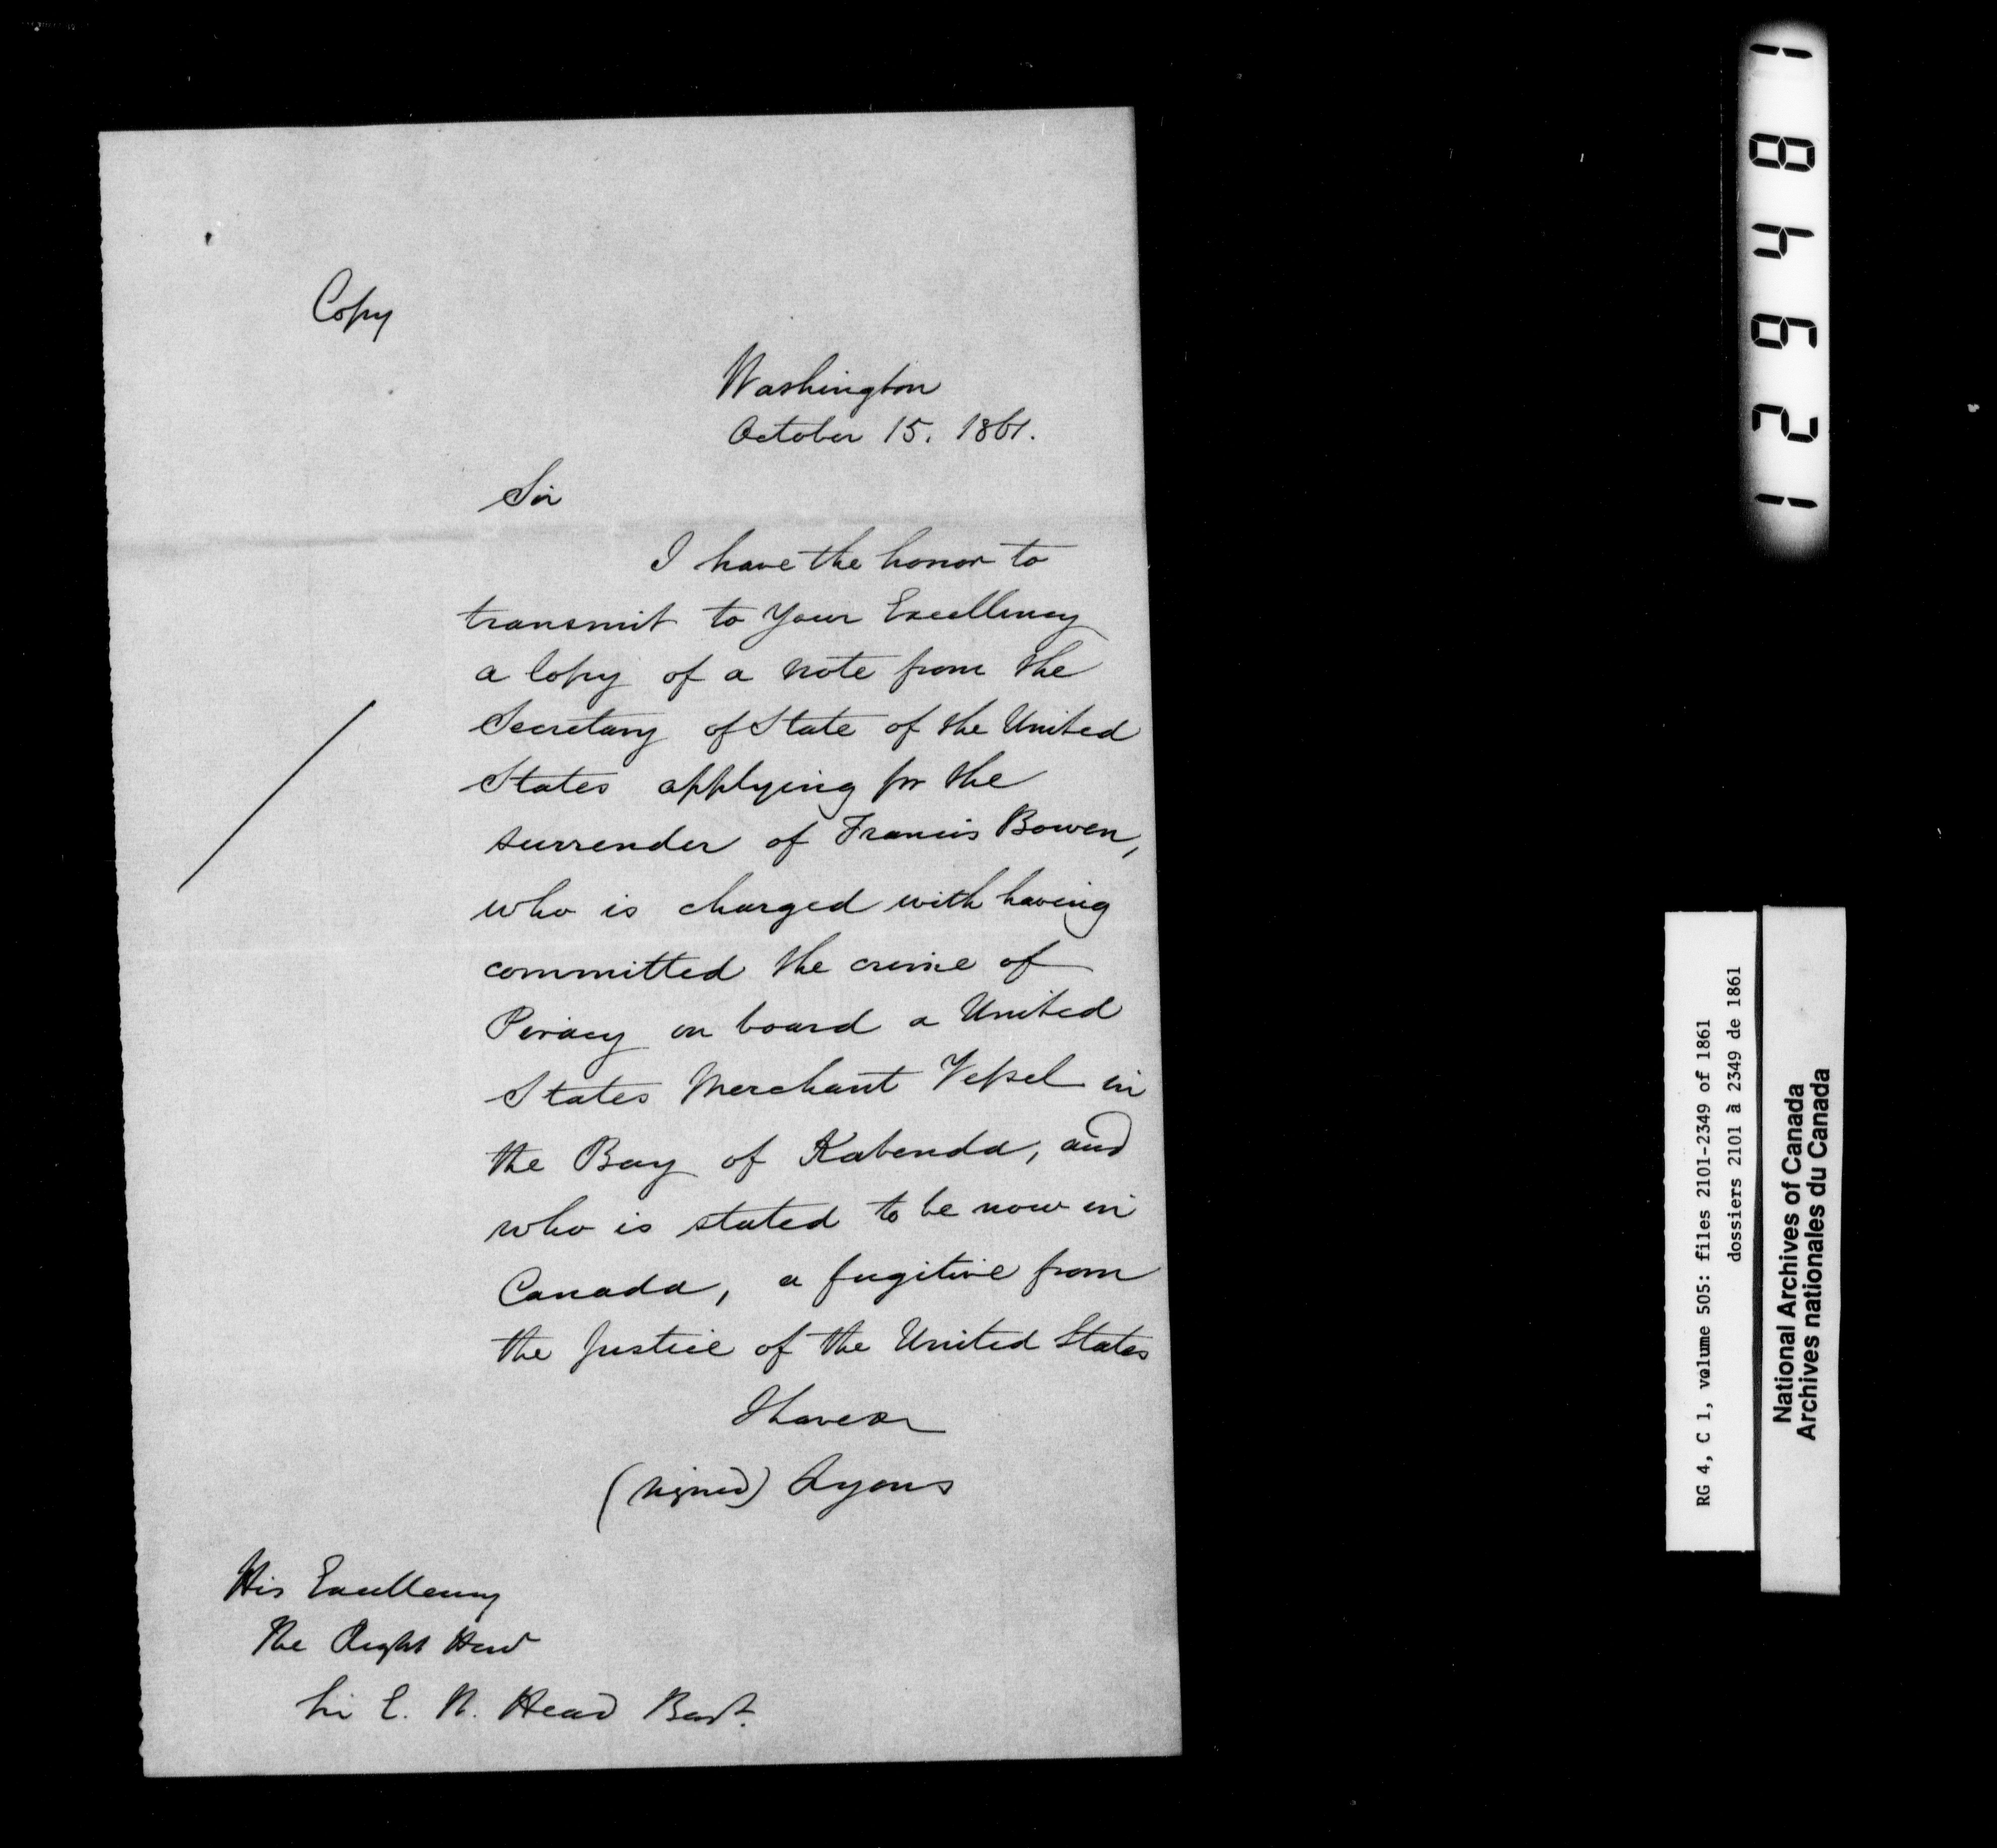 Copy
Washington
October 15. 1861.
Sir
I have the honor to
transmit to Your Excellency
a Copy of a note from the
Secretary of State of the United
States applying for the
surrender of Francis Bowen,
who is charged with having
committed the crime of
Piracy on board a United
States Merchant Vessel in
the Bay of Kabenda, and
who is stated to be now in
Canada, a fugitive from
the Justice of the United States
I have
(signed) Lyons
His Excellency
The Right Hon
Sir E. W. Head Bart.
1 2 6 4 8 1
RG 4, C 1, volume 505: files 2101-2349 of 1861
dossiers 2101 à 2349 de 1861
National Archives of Canada
Archives nationales du Canada